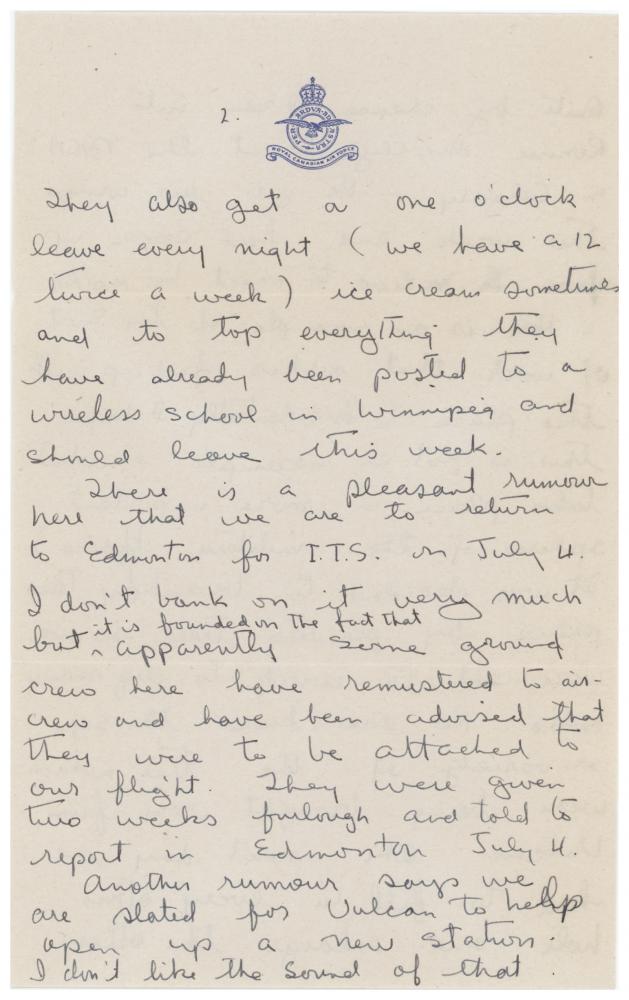 2.
PER ARDVA AD ASTRA
ROYAL CANADIAN AIR FORCE
They also get a one o'clock
leave every night ( we have a 12
twice a week ) ice cream sometimes
and to top everything they
have already been posted to a
wireless school in Winnipeg and
should leave this week.
There is a pleasant rumour
here that we are to return
to Edmonton for I.T.S. on July 4.
I don't bank on it very much
it is founded on the fact that
but ^ apparently some ground
crew here have remustered to air-
crew and have been advised that
they were to be attached to
our flight. They were given
two weeks furlough and told to
report in Edmonton July 4.
Another rumour says we
are slated for Vulcan to help
open up a new station.
I don't like the sound of that.